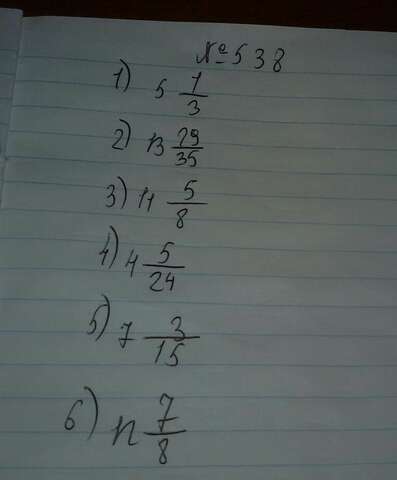 №538
1) 5 1/3
2) 13 29/35
3) 11 5/8
4) 4 5/24
5) 7 3/15
6) 7/8